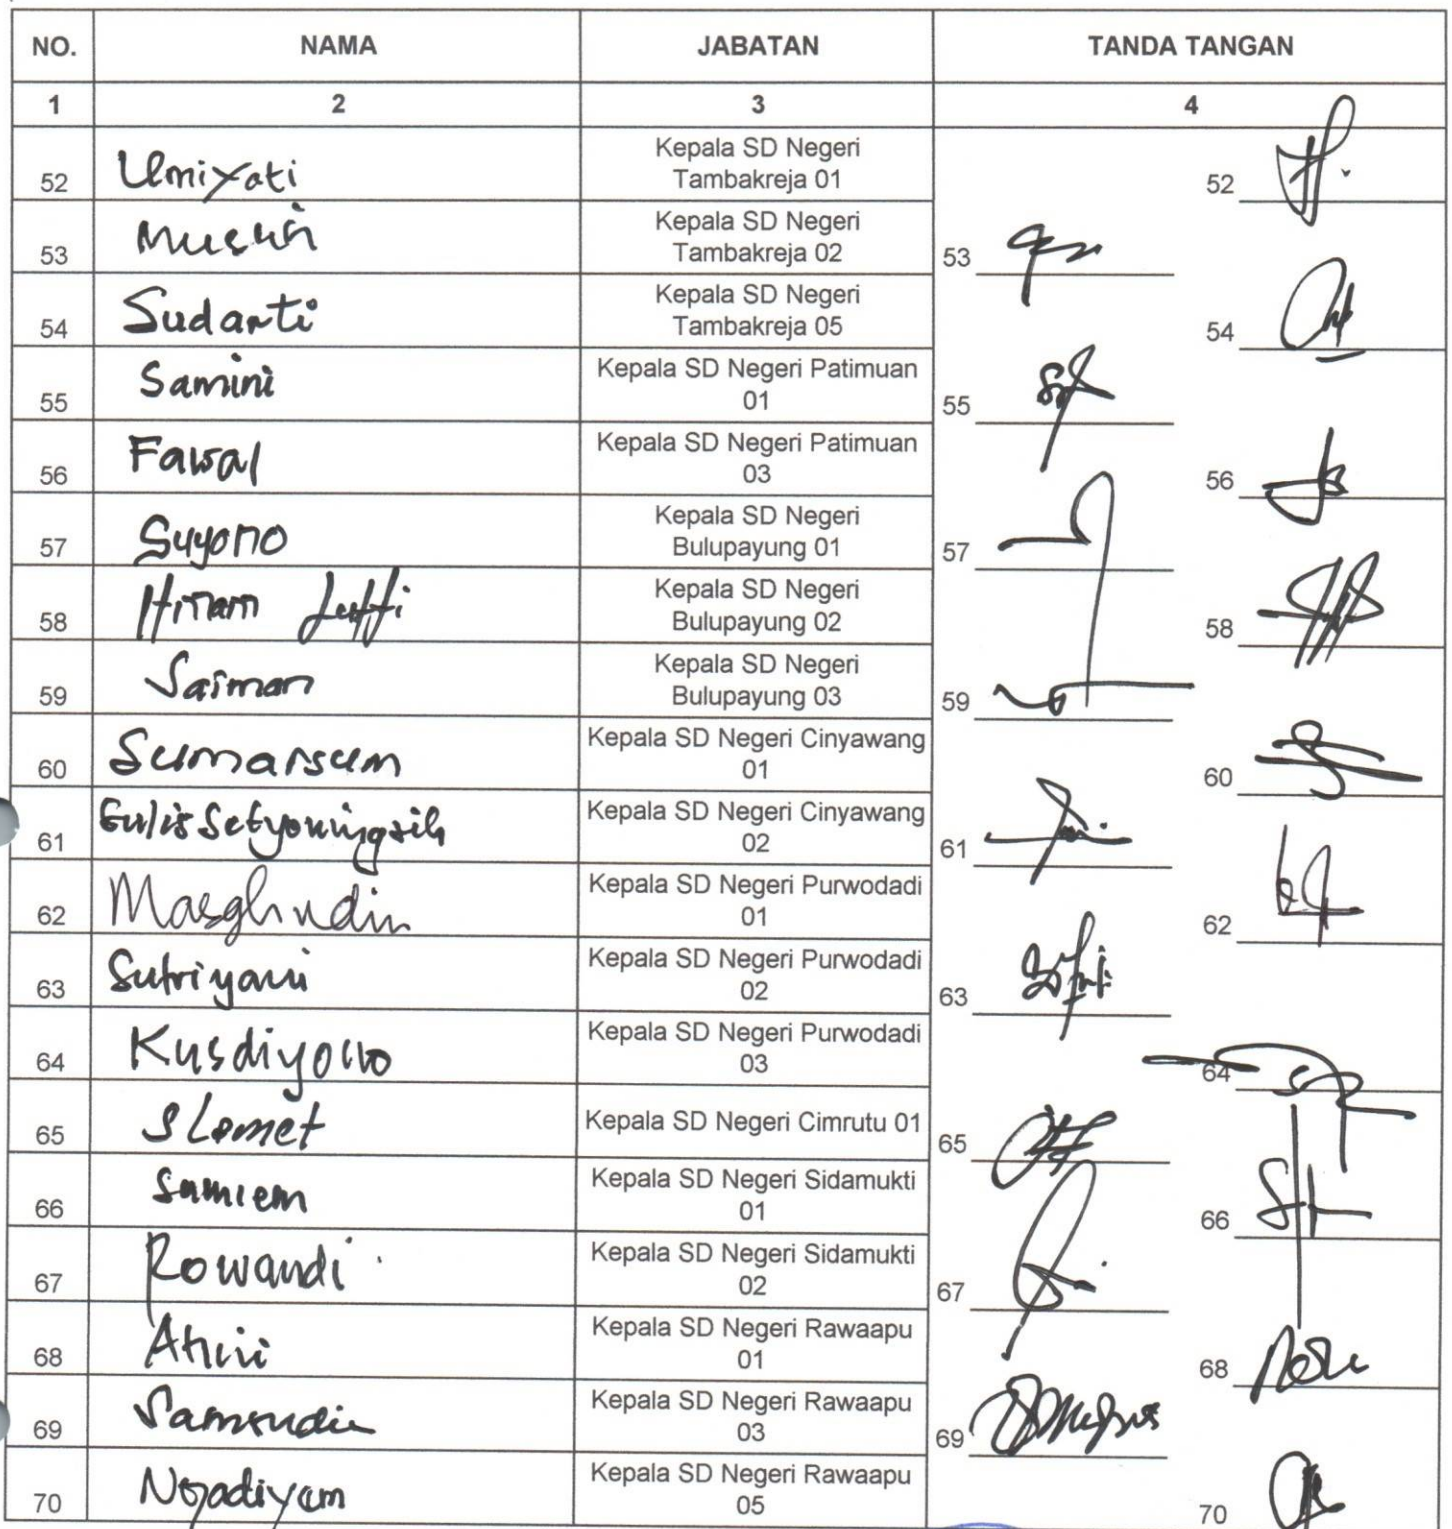 NO. NAMA JABATAN TANDA TANGAN
1 2 3 4
52 Umiyati Kepala SD Negeri Tambakreja 01 52
53 Kepala SD Negeri Tambakreja 02 53
54 Sudarti Kepala SD Negeri Tambakreja 05 54
55 Samini Kepala SD Negeri Patimuan 01 55
56 Fawal Kepala SD Negeri Patimuan 03 56
57 Suyono Kepala SD Negeri Bulupayung 01 57
58 Himam Luffi Kepala SD Negeri Bulupayung 02 58
59 Saiman Kepala SD Negeri Bulupayung 03 59
60 Sumarsum Kepala SD Negeri Cinyawang 01 60
61 Setyoningsih Kepala SD Negeri Cinyawang 02 61
62 Kepala SD Negeri Purwodadi 01 62
63 Sutriyani Kepala SD Negeri Purwodadi 02 63
64 Kusdiyono Kepala SD Negeri Purwodadi 03 64
65 Slamet Kepala SD Negeri Cimrutu 01 65
66 Samiem Kepala SD Negeri Sidamukti 01 66
67 Rowandi Kepala SD Negeri Sidamukti 02 67
68 Kepala SD Negeri Rawaapu 01 68
69 Samsudin Kepala SD Negeri Rawaapu 03 69
70 Ngadiyam Kepala SD Negeri Rawaapu 05 70